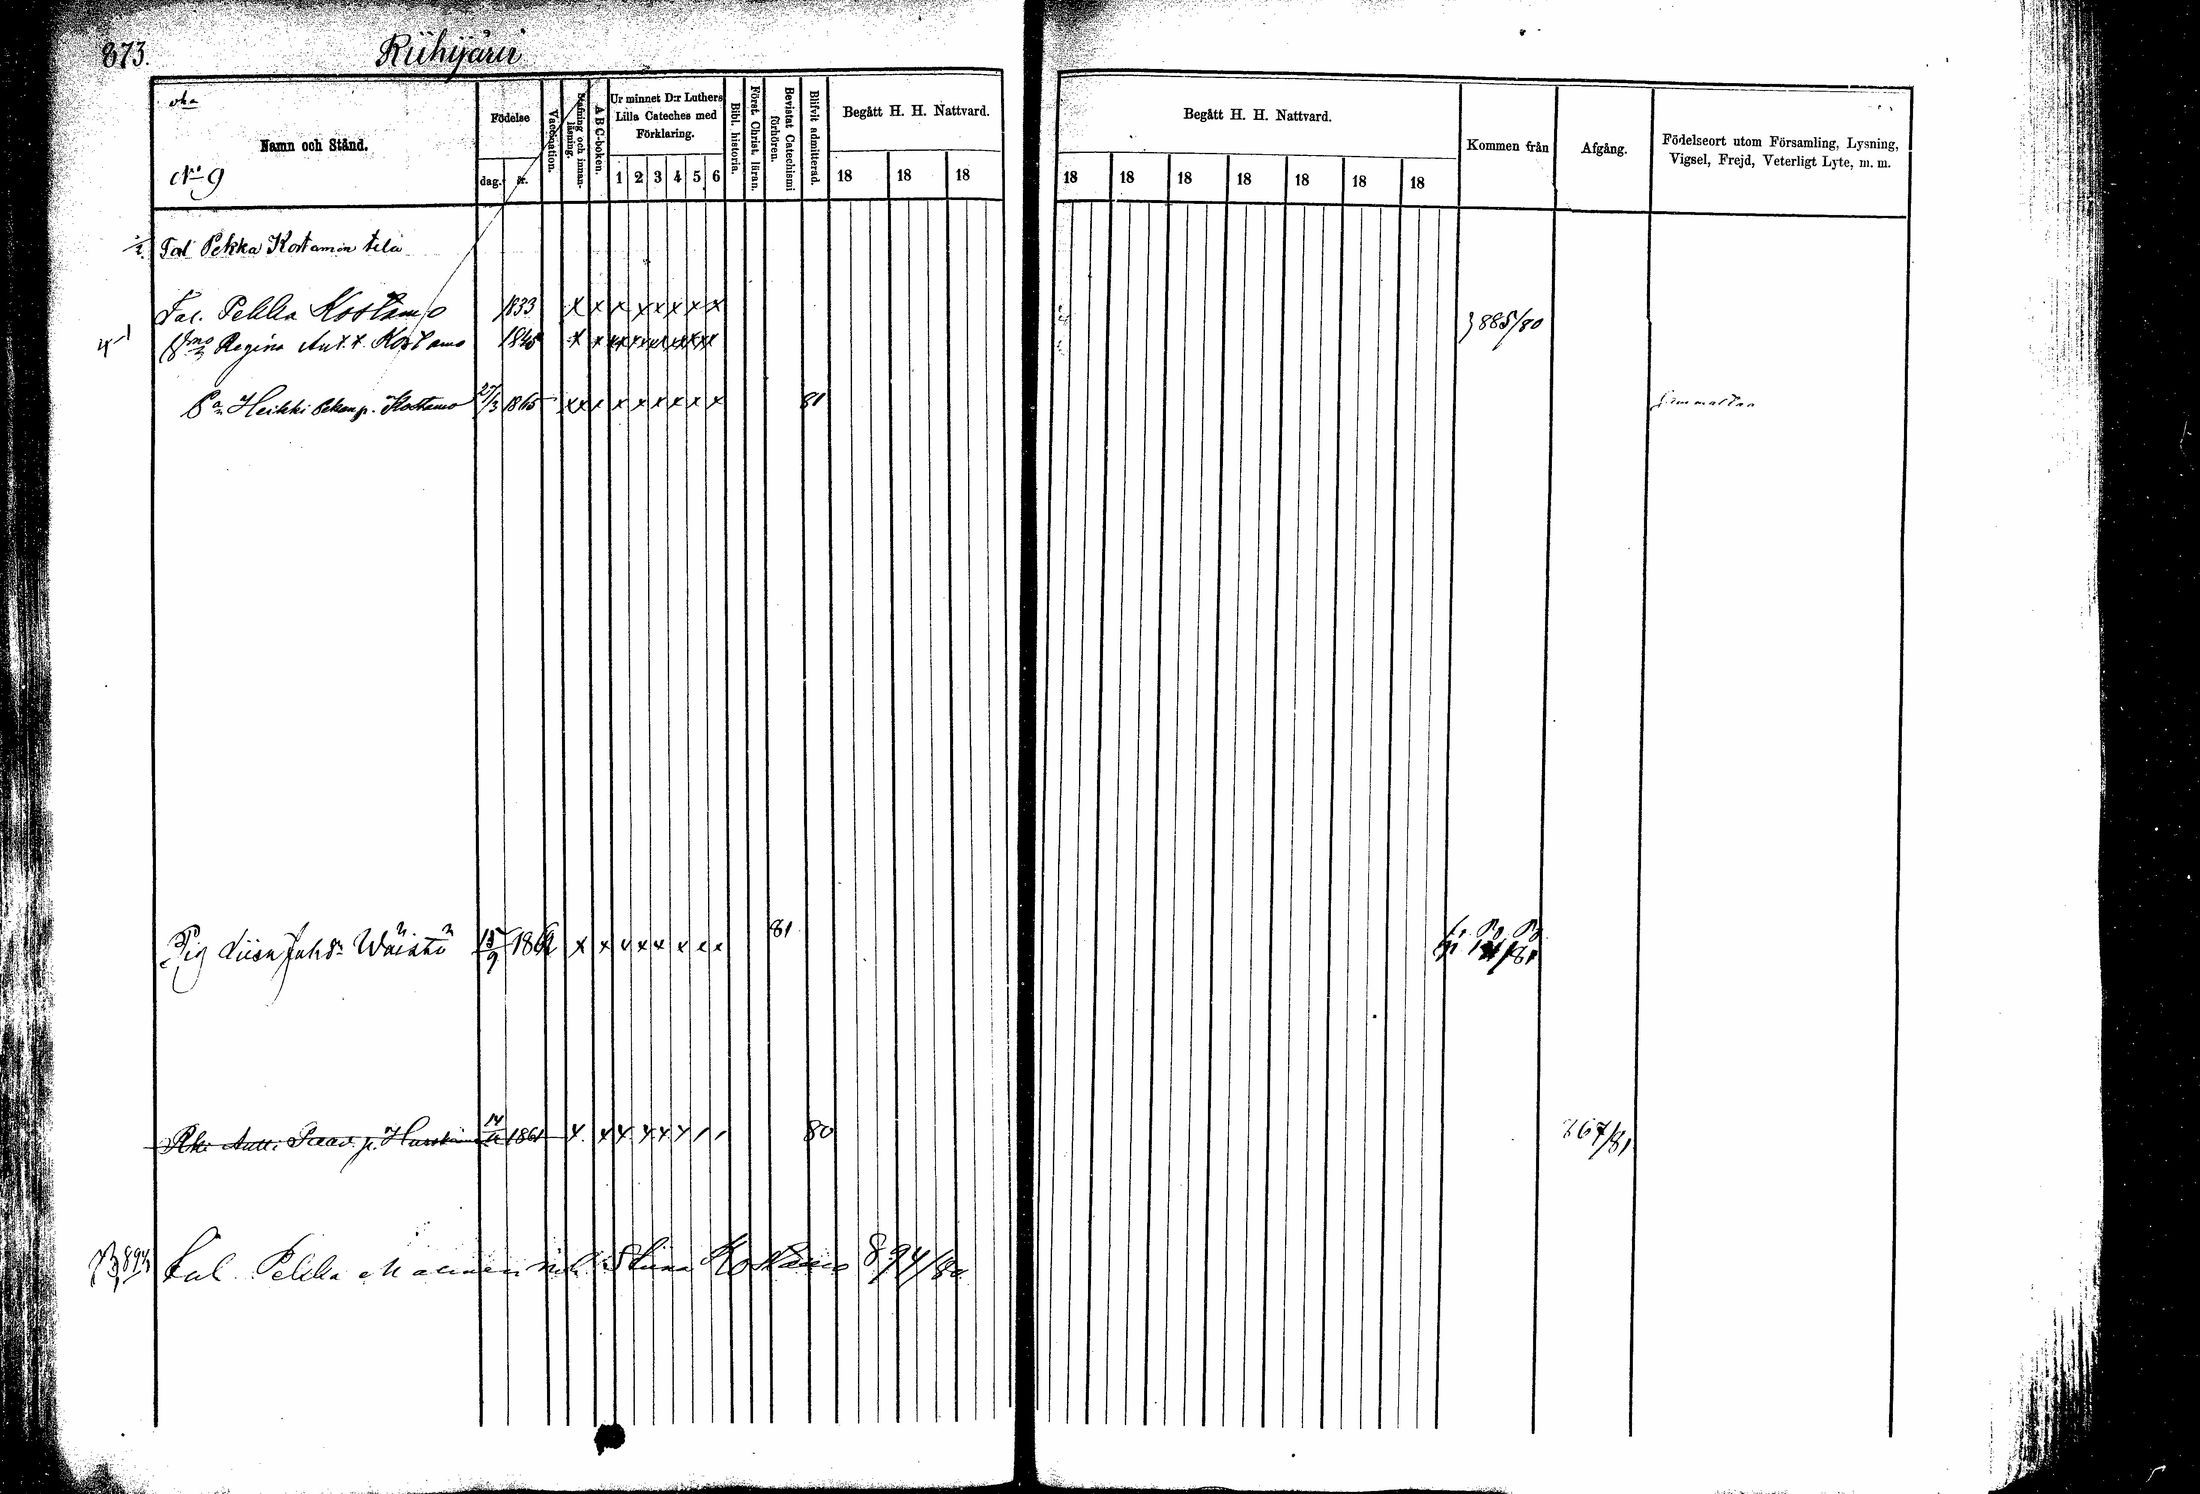 873.
Riihijärvi
Namn och Stånd.
No 9
Födelse
dag.
år.
Vaccination.
Stafning och innan-
läsning.
A B C-boken.
Ur minnet D:r Luthers
Lilla Cateches med
Förklaring.
1 2 3 4 5 6
Bibl. historia.
Först. Christ. läran.
Bevistat Catechismi
förhören.
Blifvit admitterad.
Begått H. H. Nattvard.
18 18 18
Begått H. H. Nattvard.
18 18 18 18 18 18 18
Kommen från
Afgång.
Födelseort utom Församling, Lysning,
Vigsel, Frejd, Veterligt Lyte, m. m.
Tal Pekka Kostamon tila
Tal. Pekka Kostamo 1833 x x x x x x x x 885/80
Regina Ant. t. Kostamo 1840 x x x x x x x x
Pa Heikki Pekan p. Kostamo 27/3 1865 x x x x x x x x x 81
Pig Liisa Jak Wäistö 15/9 1862 x x x x x x x x 81
Antti Paav. p. 14 1861 x x x x x x / / 80 867/81
Tal. Pekka Stiina Kostamo 894/80